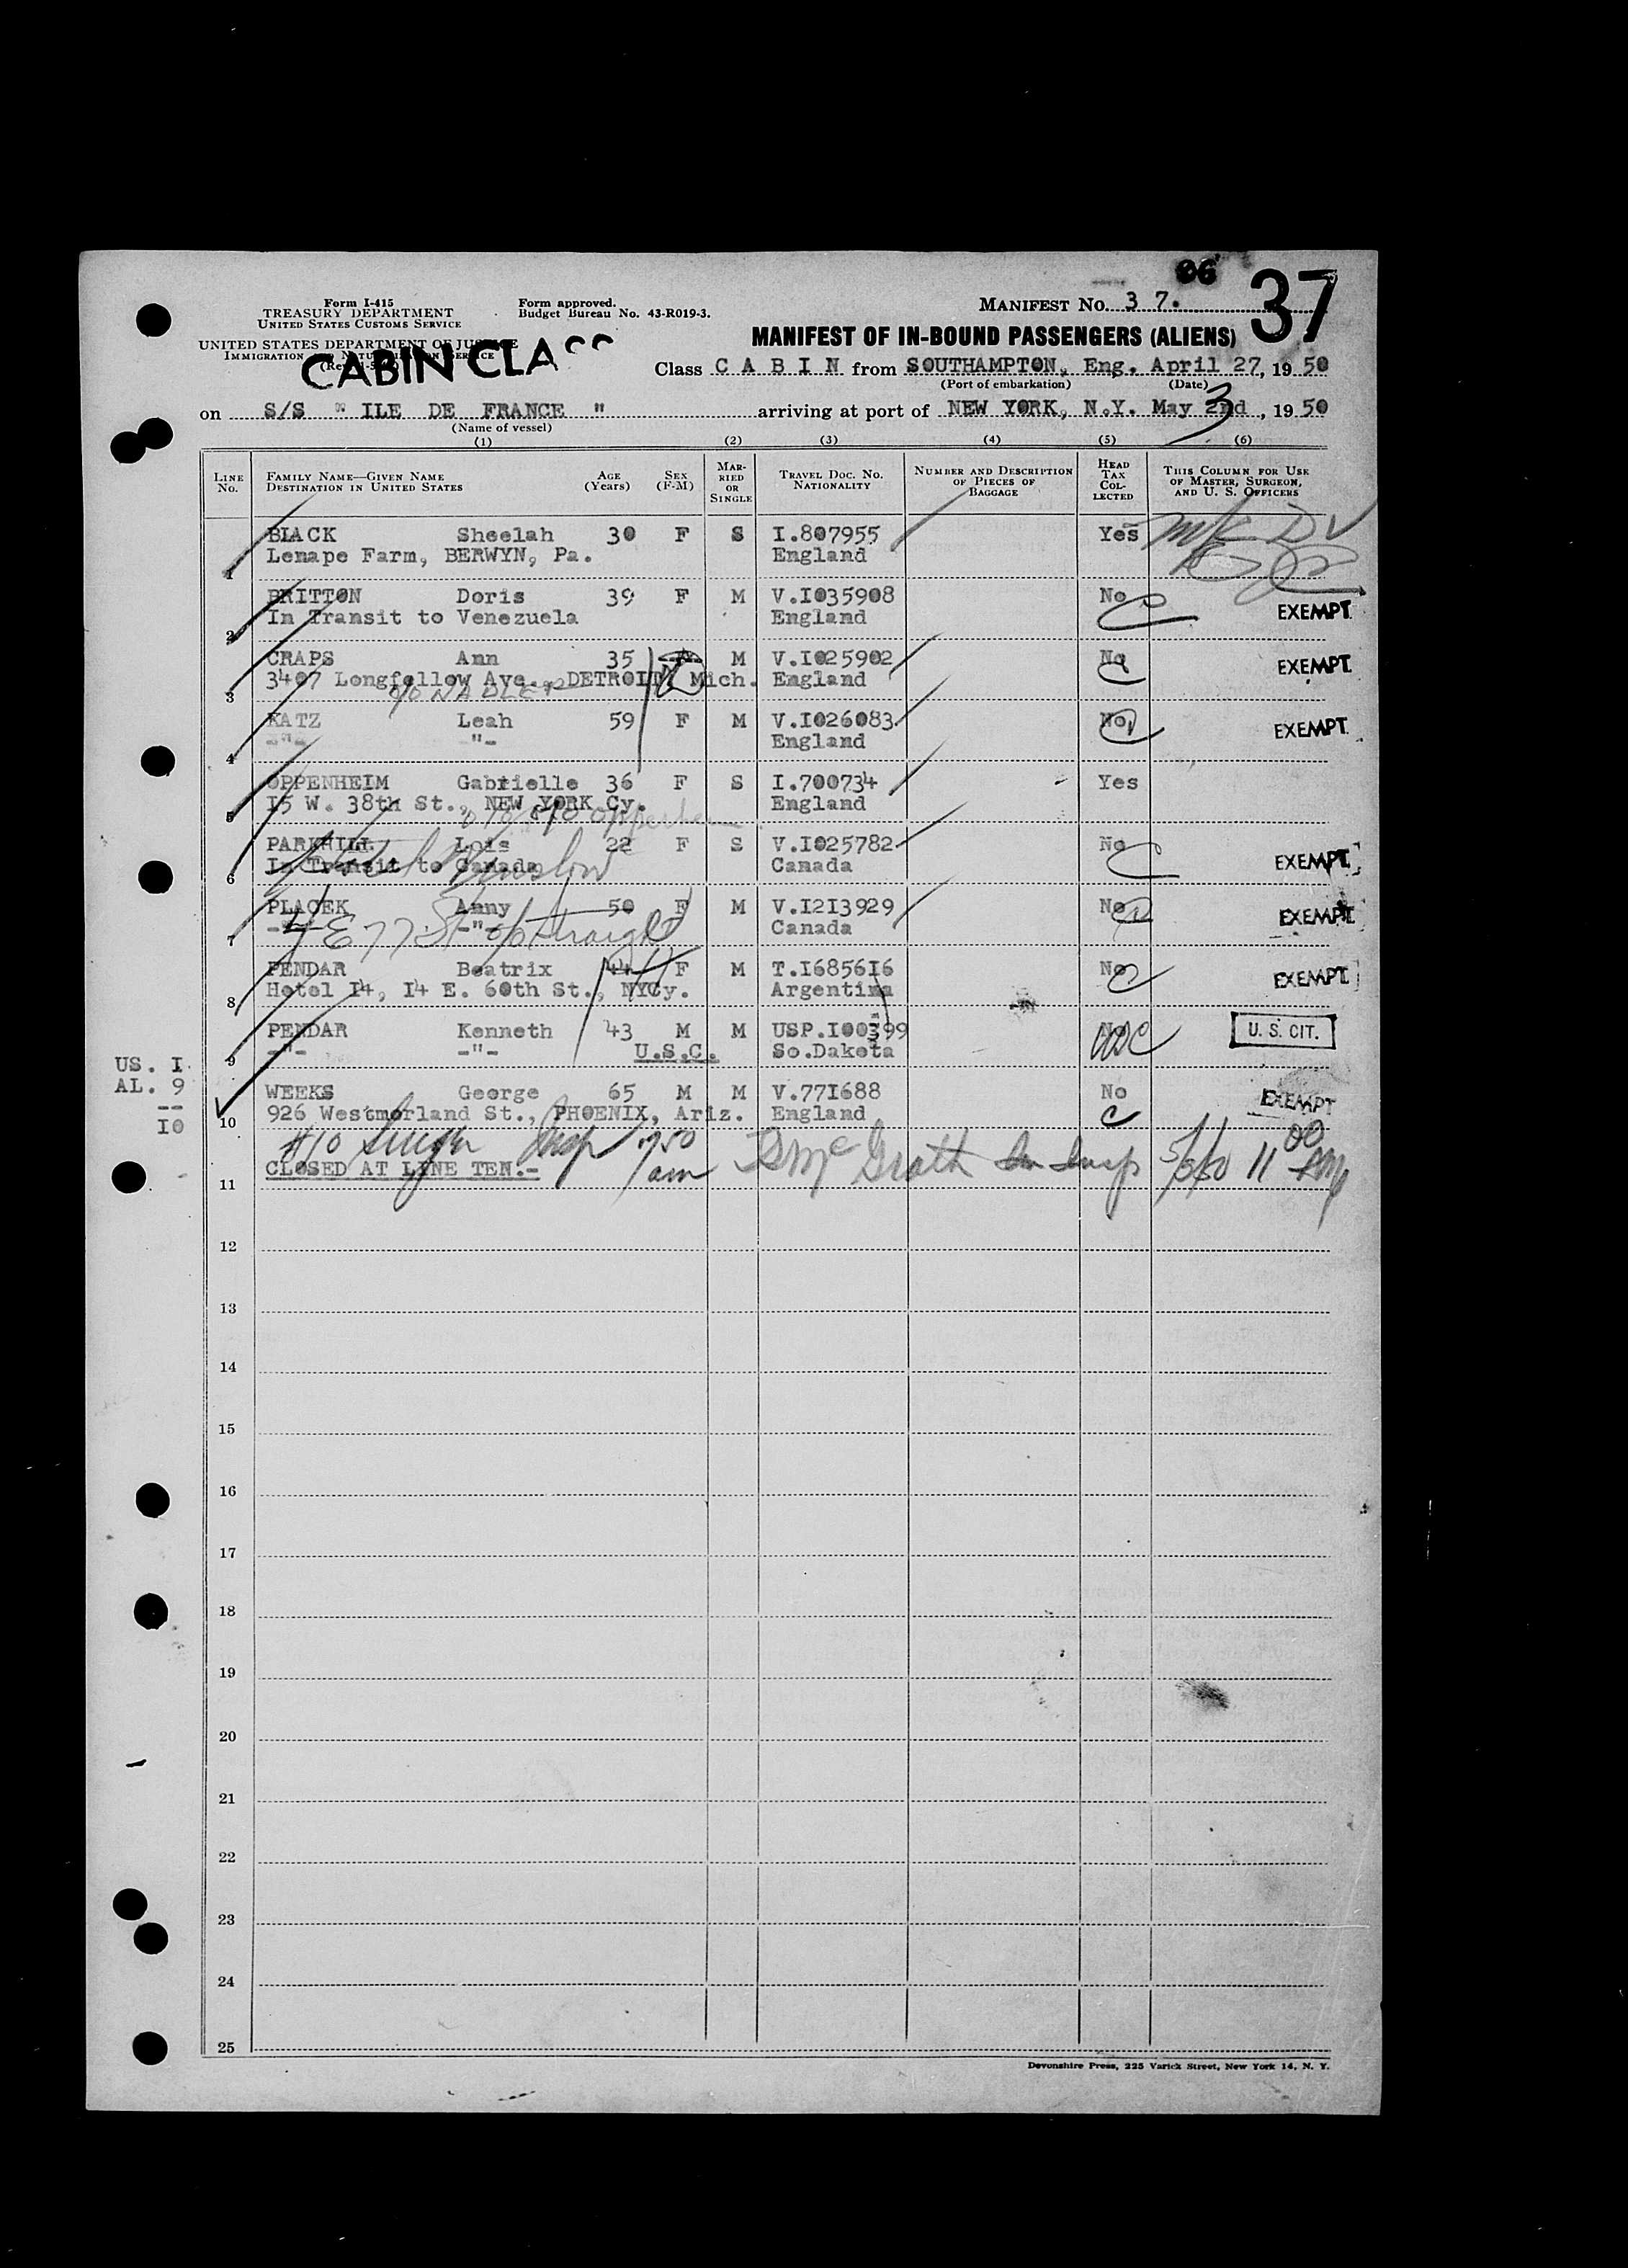 06
37
Form I-415
TREASURY DEPARTMENT
UNITED STATES CUSTOMS SERVICE
UNITED STATES DEPARTMENT OF JUSTICE
IMMIGRATION AND NATURALIZATION SERVICE
Form approved.
Budget Bureau No. 43-R019-3.
MANIFEST NO. 3 7.
MANIFEST OF IN-BOUND PASSENGERS (ALIENS)
CABIN CLASS
Class C A B I N from SOUTHAMPTON, Eng. April 27, 19 50
(Port of embarkation) (Date)
on S/S " ILE DE FRANCE " arriving at port of NEW YORK, N.Y. May 2nd 3, 19 50
(Name of vessel)
(1) (2) (3) (4) (5) (6)
LINE No. FAMILY NAME—GIVEN NAME DESTINATION IN UNITED STATES AGE (Years) SEX (F-M) MARRIED OR SINGLE TRAVEL DOC. NO. NATIONALITY NUMBER AND DESCRIPTION OF PIECES OF BAGGAGE HEAD TAX COLLECTED THIS COLUMN FOR USE OF MASTER, SURGEON, AND U. S. OFFICERS
BLACK Sheelah 30 F S I.807955 Yes
1 Lenape Farm, BERWYN, Pa. England
BRITTON Doris 39 F M V.I035908 No
2 In Transit to Venezuela England EXEMPT
CRAPS Ann 35 M V.I025902 No EXEMPT
3 3407 Longfellow Ave. DETROIT, Mich. England
c/o NADLER
KATZ Leah 59 F M V.I026083 No EXEMPT
4 -"- -"- England
OPPENHEIM Gabrielle 36 F S I.700734 Yes
5 I5 W. 38th St., NEW YORK Cy. England
PARKHILL Lois 22 F S V.I025782 No
6 In Transit to Canada Canada EXEMPT
PLACEK Anny 50 F M V.I2I3929 No EXEMPT
7 -"- -"- Canada
E 77 St c/o Straight
PENDAR Beatrix 44 F M T.I6856I6 No EXEMPT
8 Hotel I4, I4 E. 60th St., NYCy. Argentina
PENDAR Kenneth 43 M M USP.I00399 No USC U. S. CIT.
9 -"- -"- U.S.C. So.Dakota
US. I
AL. 9
--
I0
WEEKS George 65 M M V.77I688 No EXEMPT
10 926 Westmorland St., PHOENIX, Ariz. England
#10 Insp am McGrath Im Insp 11 00
CLOSED AT LINE TEN.-
11
12
13
14
15
16
17
18
19
20
21
22
23
24
25
Devonshire Press, 225 Varick Street, New York 14, N. Y.